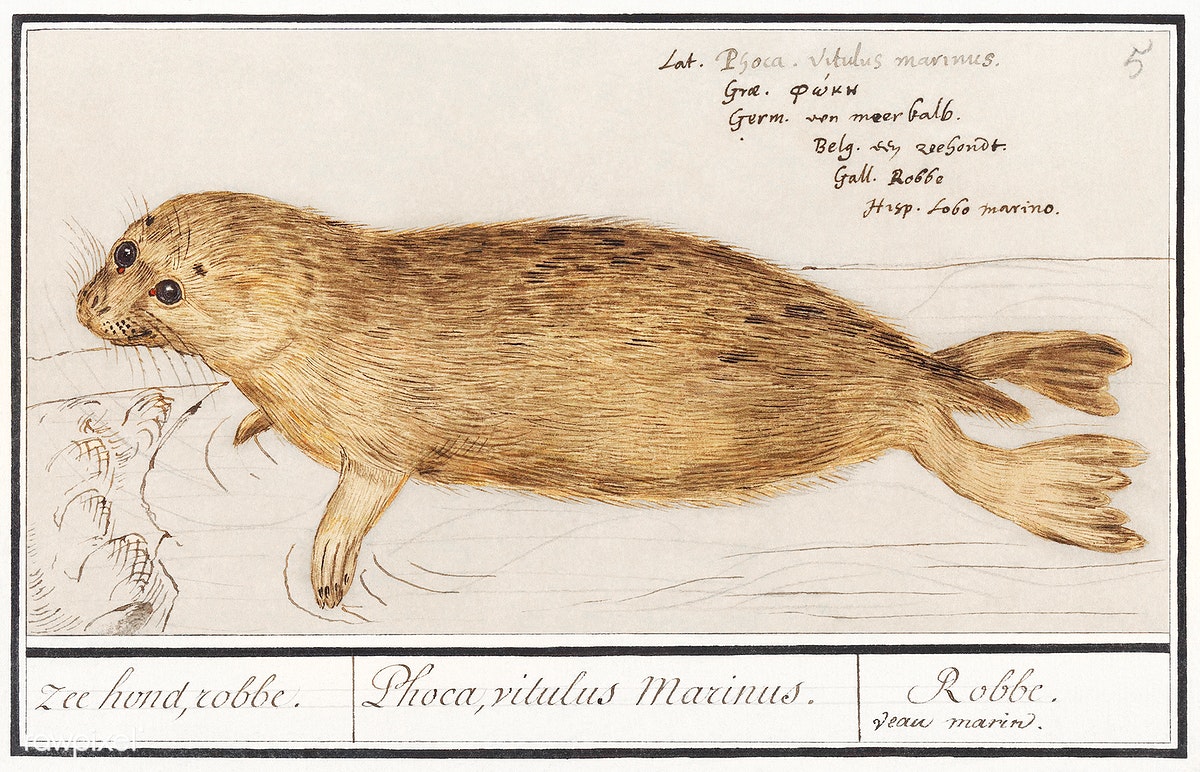 5
Lat. Phoca. Vitulus marinus.
Græ. φώκη
Germ. een meerkalb.
Belg. een zeehondt.
Gall. Robbe
Hisp. Lobo marino.
zee hond, robbe.
Phoca, vitulus Marinus.
Robbe.
veau marin.
rawpixel